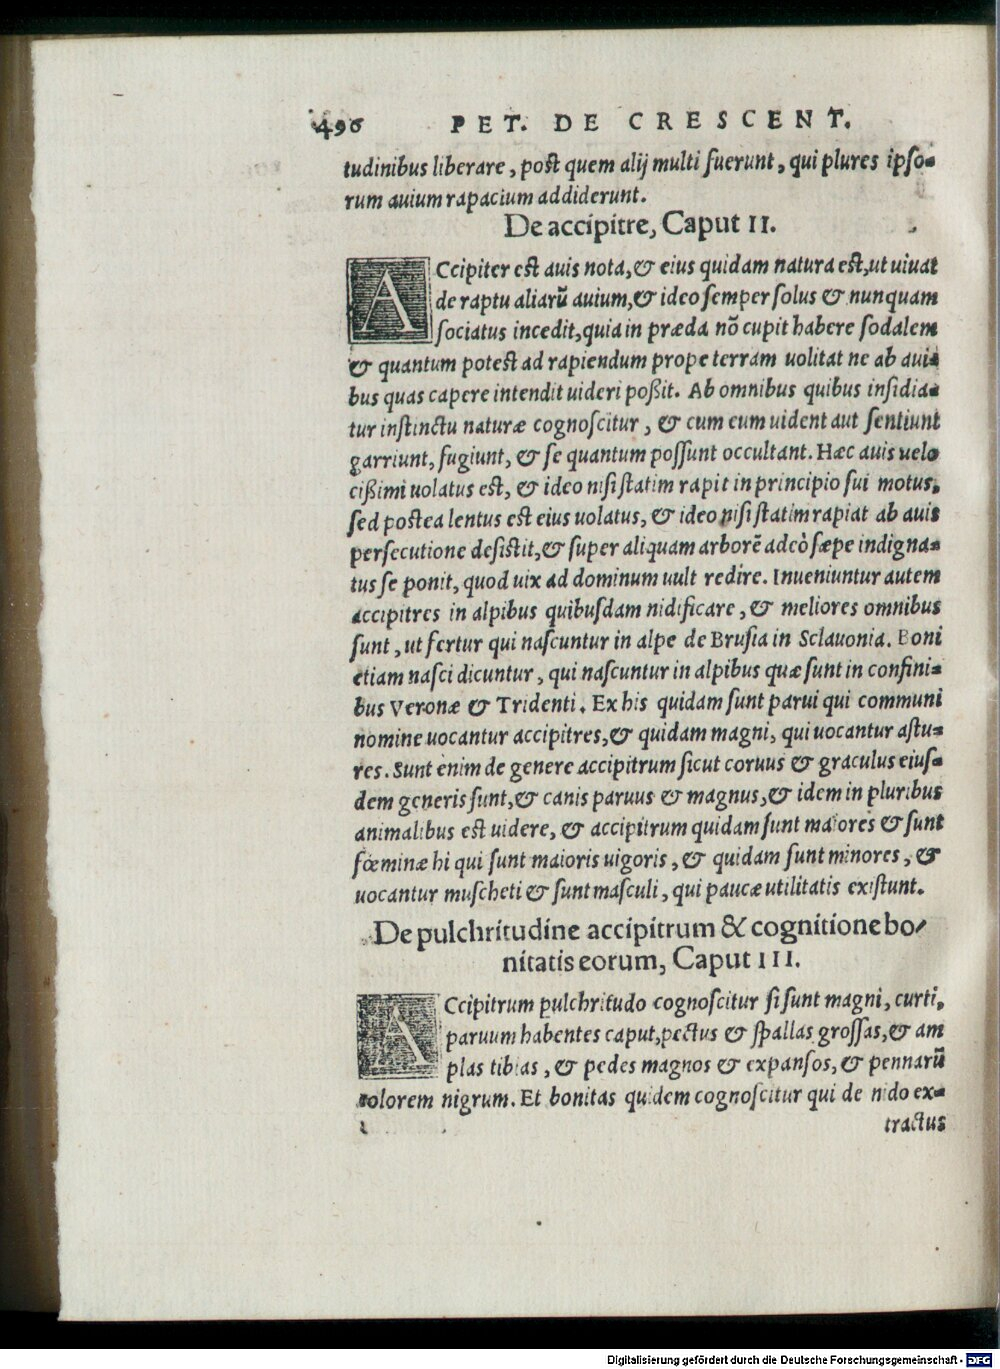 496 PET. DE CRESCENT.
tudinibus liberare, post quem alij multi fuerunt, qui plures ipso-
rum auium rapacium addiderunt.
De accipitre, Caput II.
ACcipiter est auis nota, & eius quidam natura est, ut uiuat
de raptu aliarū auium, & ideo semper solus & nunquam
sociatus incedit, quia in præda nō cupit habere sodalem
& quantum potest ad rapiendum prope terram uolitat ne ab aui-
bus quas capere intendit uideri poßit. Ab omnibus quibus insidia-
tur instinctu naturæ cognoscitur, & cum eum uident aut sentiunt
garriunt, fugiunt, & se quantum possunt occultant. Hæc auis uelo
cißimi uolatus est, & ideo nisi statim rapit in principio sui motus,
sed postea lentus est eius uolatus, & ideo nisi statim rapiat ab auis
persecutione desistit, & super aliquam arborē adeò sæpe indigna-
tus se ponit, quod uix ad dominum uult redire. Inueniuntur autem
accipitres in alpibus quibusdam nidificare, & meliores omnibus
sunt, ut fertur qui nascuntur in alpe de Brusia in Sclauonia. Boni
etiam nasci dicuntur, qui nascuntur in alpibus quæ sunt in confini-
bus Veronæ & Tridenti. Ex his quidam sunt parui qui communi
nomine uocantur accipitres, & quidam magni, qui uocantur astu-
res. Sunt enim de genere accipitrum sicut coruus & graculus eius-
dem generis sunt, & canis paruus & magnus, & idem in pluribus
animalibus est uidere, & accipitrum quidam sunt maiores & sunt
fœminæ hi qui sunt maioris uigoris, & quidam sunt minores, &
uocantur muscheti & sunt masculi, qui paucæ utilitatis existunt.
De pulchritudine accipitrum & cognitione bo-
nitatis eorum, Caput III.
ACcipitrum pulchritudo cognoscitur si sunt magni, curti,
paruum habentes caput, pectus & spallas grossas, & am
plas tibias, & pedes magnos & expansos, & pennarū
colorem nigrum. Et bonitas quidem cognoscitur qui de nido ex-
tractus
Digitalisierung gefördert durch die Deutsche Forschungsgemeinschaft - DFG